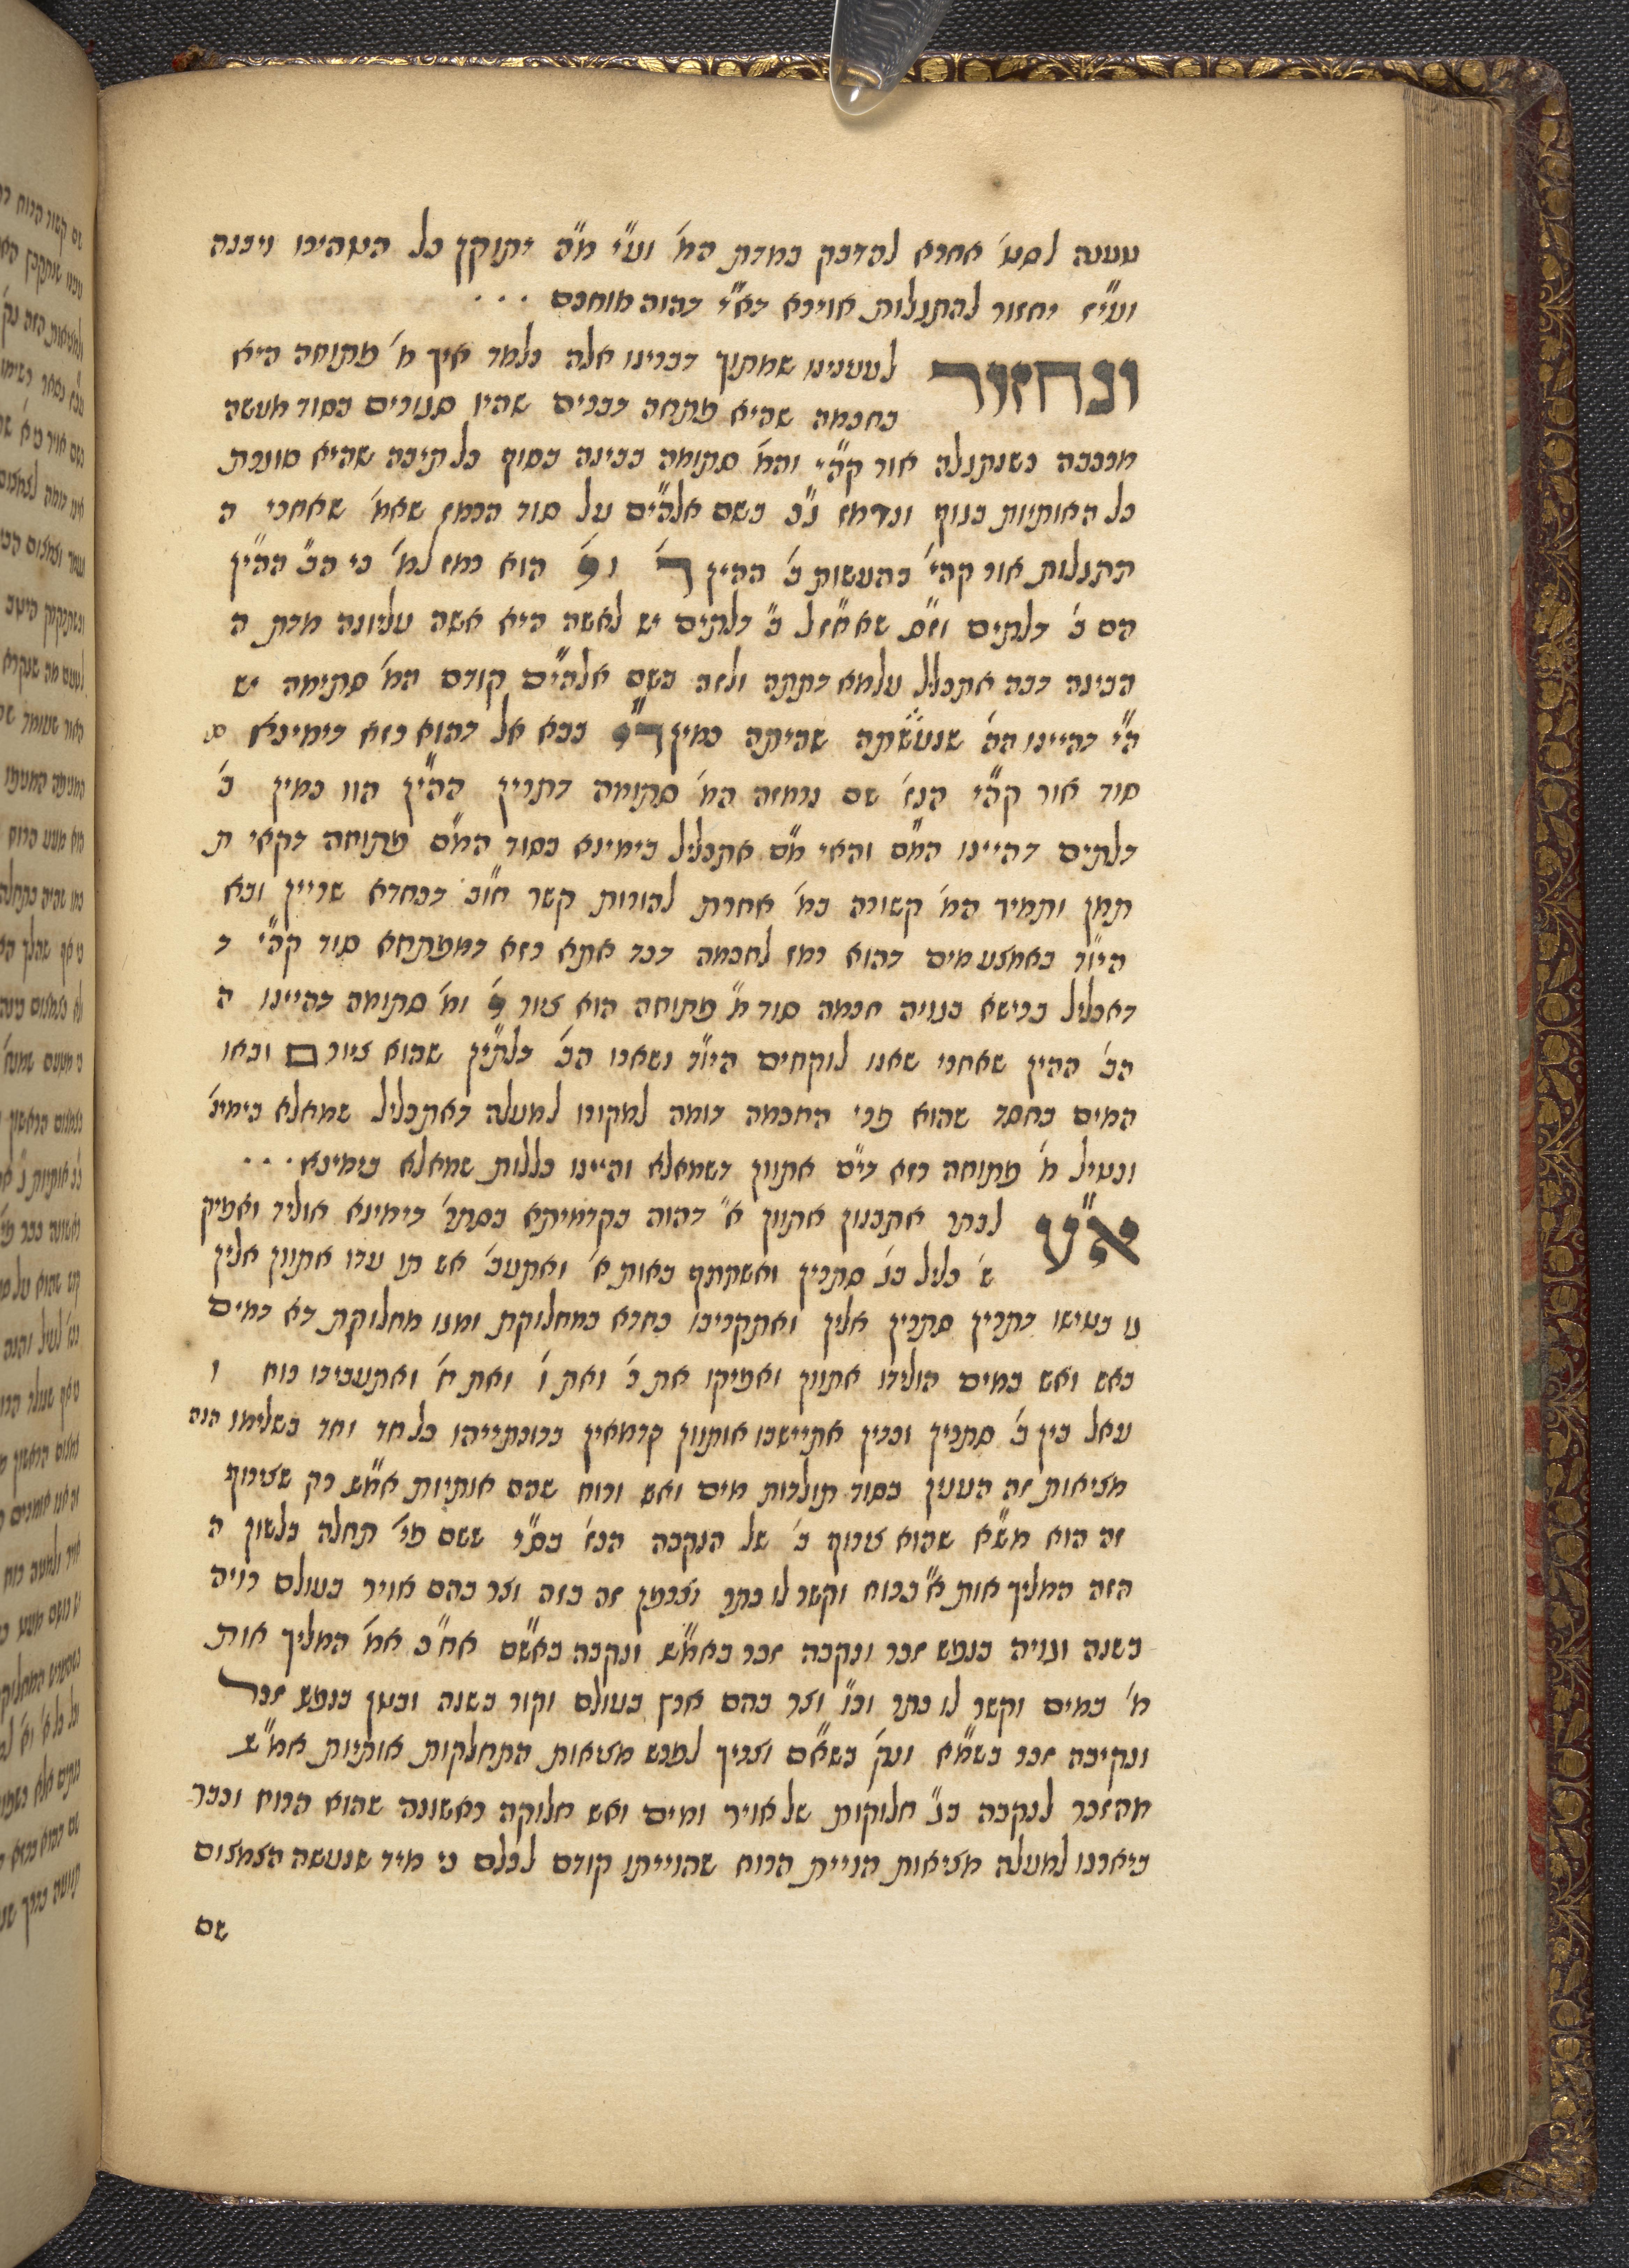 טענה לסט׳ אחרא להדבק במדת המ׳ וע״י מ״ה יתוקן כל העהיבו ויבנה
וע״ז יחזור להתגלות אוירא דא״י דהוה מוחכם . . .
ונחזור לעניננו שמתוך דברינו אלה נלמד איך מ׳ פתוחה היא
בחכמה שהיא פתחה דברים שהיו סגורים בסוד מעשה
מרכבה כשנתגלה אור קה״י והמ׳ סתומה בבינה בסוף כל תיבה שהיא סוגרת
כל האותיות בגוף ונרמז ג״כ בשם אלהים על סוד הרמז שאמ׳ שאחרי ה
התגלות אור קה״י בהעשות ב׳ ההין ר׳ ו ו׳ הוא רמז למ׳ כי הב״ ההי״ן
הם ב׳ דלתים וז״ס שאחז״ל ב׳ דלתים יש לאשה היא אשה עליונה מדת ה
הבינה דבה אתכליל עלמא דתתה ולזה בשם אלהי״ם קודם המ׳ סתימה יש
ה״י דהיינו הה׳ שנעשתה שהיתה כמין ר״ו ככא אל דהוא רזא דימינא ס
סוד אור קה״י הנז׳ שם נרמזה המ׳ סתומה דתרין ההי״ן הוו כמין ב׳
דלתים דהיינו המ״ם והאי מ״ם אתכליל בימינא בסוד המ״ם פתוחה דקאי ת
תמן ותמיד המ׳ קשורה במ׳ אחרת להורות קשר חו״ב דבחדא שריין ובא
היו״ד באמצע מים דהוא רמז לחכמה דבד אתא רזא דמפתחא סוד קה״י ד
דאכליל ברישא בגויה חכמה סוד מ״ פתוחה הוא ציור ו׳ ומ׳ סתומה דהיינו ה
הב׳ ההין שאחרי שאנו לוקחים היו״ד נשארו הב׳ דלתי״ן שהוא ציור ם ובאו
המים בחסד שהוא פרי החכמה דומה למקורו למעלה דאתכליל שמאלא בימינ׳
ונטיל מ׳ פתוחה רזא די״ם אתוון דשמאלא והיינו כללות שמאלא בימינא . . .
א״ש לבתר אתבנון אתוון א״ דהוה בקדמיתא בסתר׳ דימינא אוליד ואפיק
ש׳ כליל בג׳ סתרין ואשתתף באות א׳ ואתעב׳ אש תו עדו אתוון אלין
גו בטישו דתרין סתרין אלין ואתקריבו בחדא במחלוקת ומגו מחלוקת דא דמים
באש ואש במים הולידו אתוון ואפיקו את ר׳ ואת ו׳ ואת ח׳ ואתעבידו רוח ו
עאל בין ב׳ סתרין וכדין אתיישבו אותוון קדמאין בדוכתייהו כל חד וחד בשלימו הנה
מציאות זה הענין בסוד תולדות מים ואש ורוח שהם אותיות אמ״ש רק שצירוף
זה הוא מש״א שהוא צירוף ב׳ של הנקבה הנז׳ בס״י ששם פי׳ תחלה בלשון ה
הזה המליך אות א״ ברוח וקשר לו כתר וצרפן זה בזה וצר בהם אויר בעולם רויה
בשנה וגויה בנפש זכר ונקבה זכר באמ״ש ונקבה באש״ם אח״כ אמ׳ המליך אות
מ׳ במים וקשר לו כתר וכו׳ וצר בהם ארץ בעולם וקור בשנה ובטן בנפש זכר
ונקיבה זכר במש״א ונק׳ בשא״ם וצריך לפרש מציאות התחלקות אותיות אמ״ש
מהזכר לנקבה בג״ חלוקות של אויר ומים ואש חלוקה ראשונה שהוא הרוח וכבר
ביארנו למעלה מציאות הויית הרוח שהוייתו קודם לכלם כי מיד שנעשה הצמצום
שם